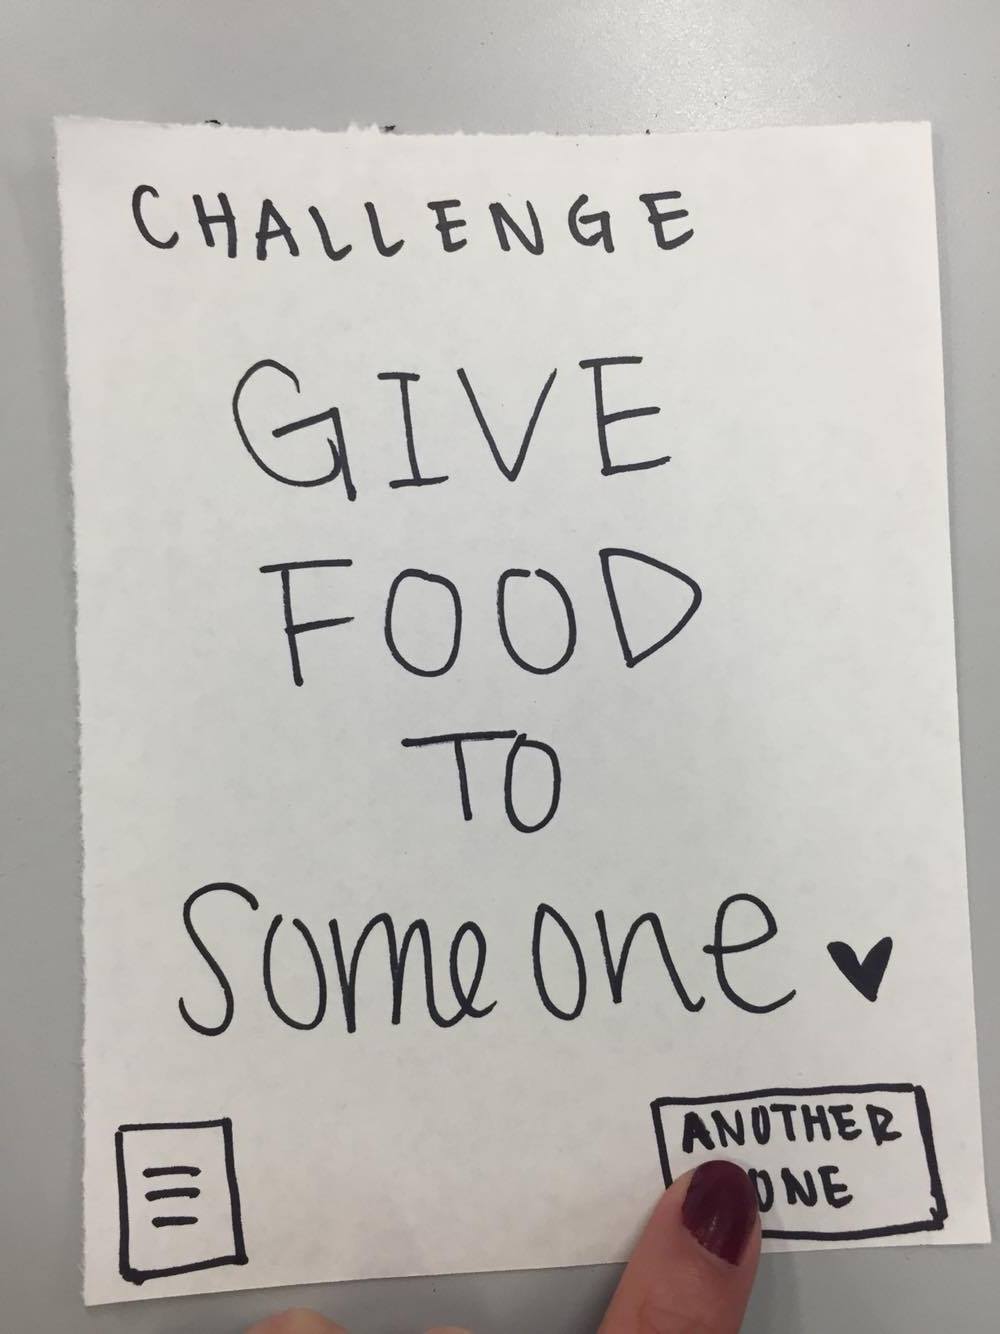 CHALLENGE
GIVE
FOOD
TO
someone
ANOTHER
ONE